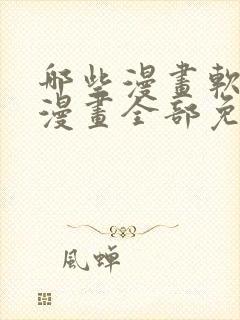 哪些漫畫軟
漫畫全部免
風蟬